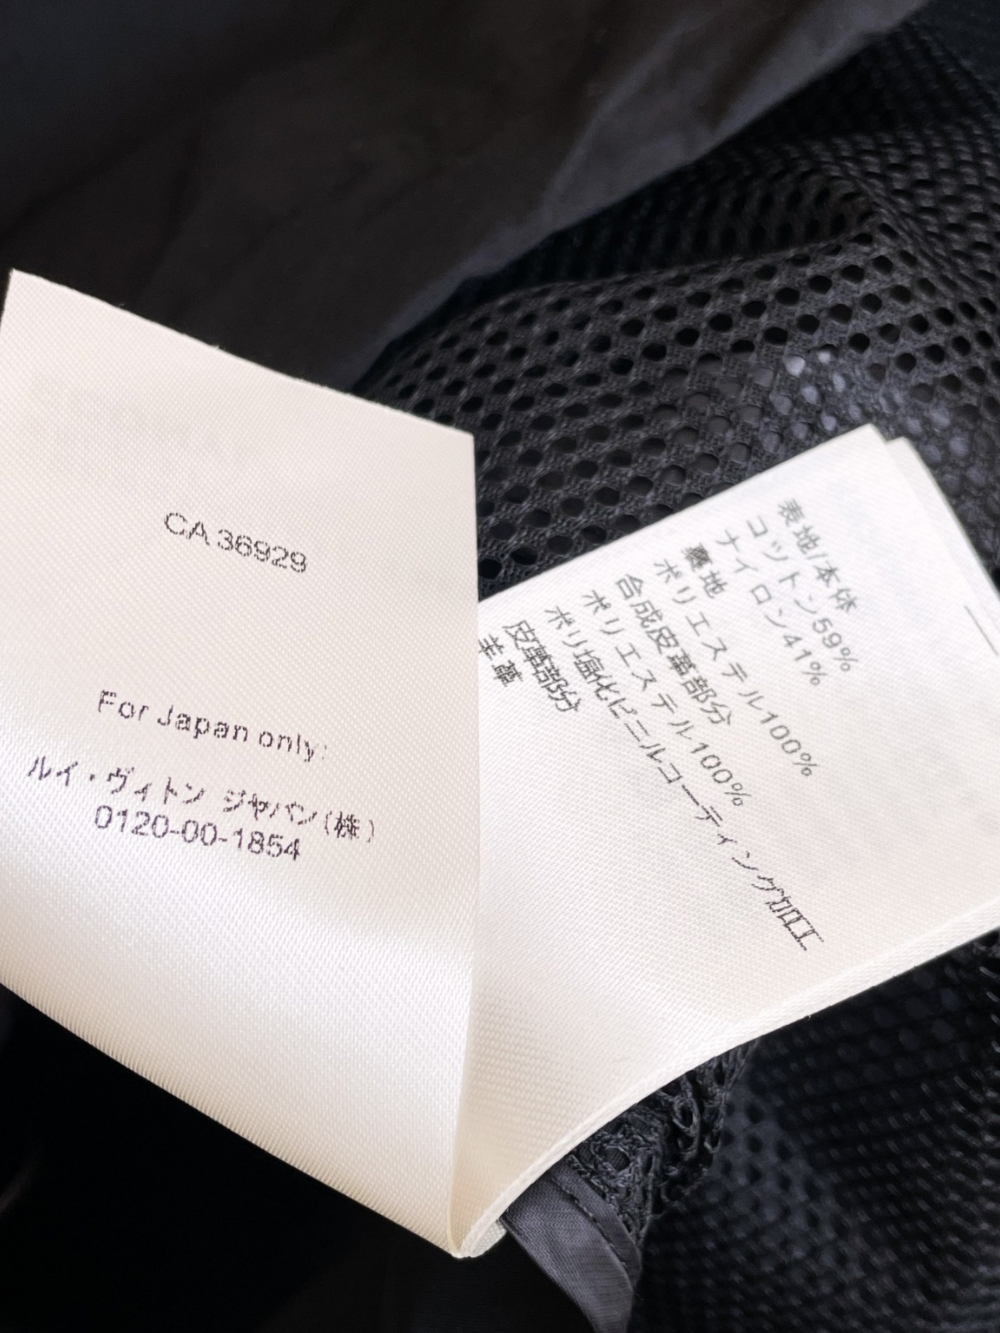 CA 36929
For Japan only:
ルイ・ヴィトン ジャパン(株)
0120-00-1854
表地/本体
コットン59%
ナイロン41%
裏地
ポリエステル100%
合成皮革部分
ポリエステル100%
ポリ塩化ビニルコーティング加工
皮革部分
羊革